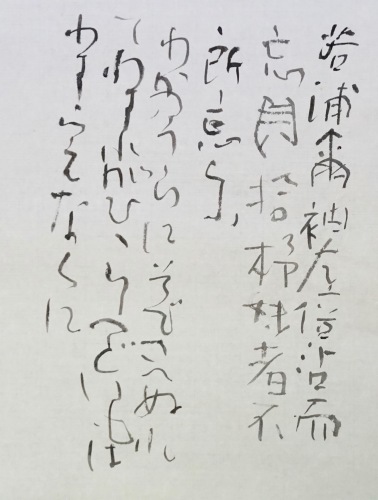 若浦爾袖左倍沾而
忘貝拾杼妹者不
所忘尓
わかのうらにそでさへぬれ
てわすれがひゝりへどいもは
わすらえなくに